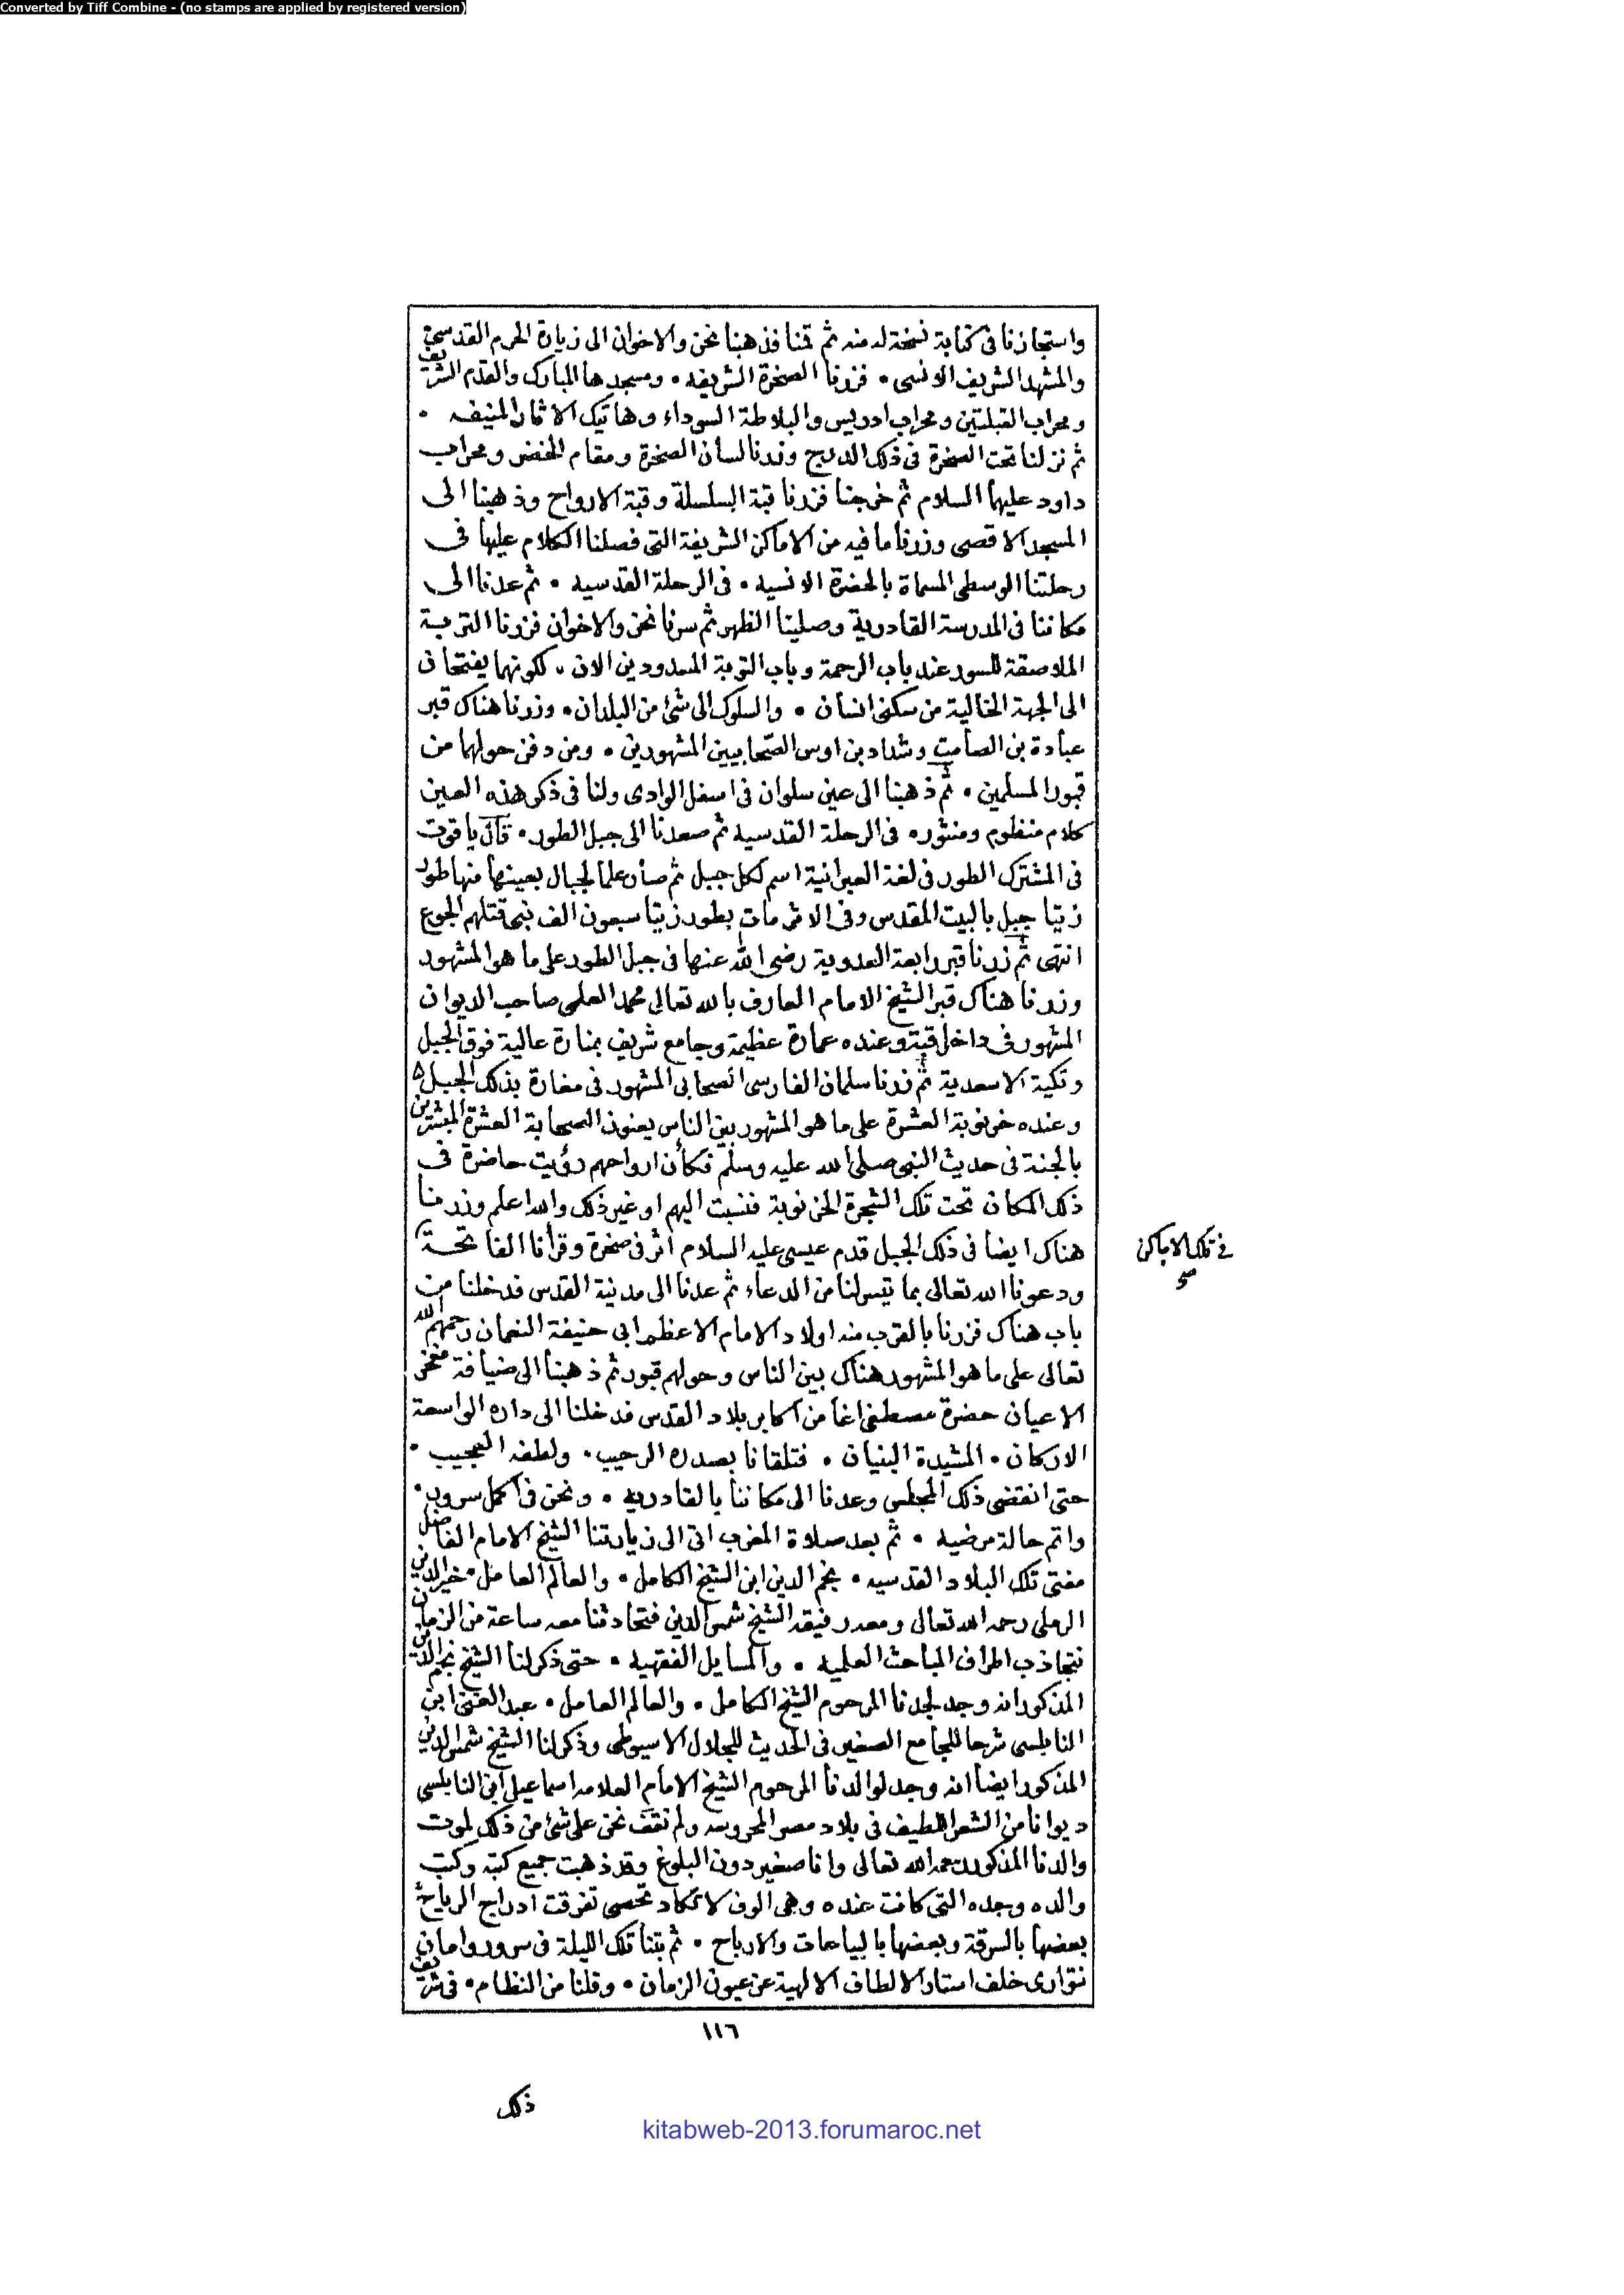 Converted by Tiff Combine - (no stamps are applied by registered version)
واستجازنا فى كتابة نسخة له منه ثم قمنا فذهبنا نحن والاخوان الى زيارة الحرم القدسى
والمشهد الشريف الانسى • فزرنا الصخرة الشريفه • ومسجدها المبارك والقدم الشريف
ومحراب القبلتين ومحراب ادريس والبلاطة السوداء وهاتيك الاثار المنيفه •
ثم نزلنا تحت الصخرة فى ذلك الدرج وزرنا لسان الصخرة ومقام الخضر ومحراب
داود عليهما السلام ثم خرجنا فزرنا قبة السلسلة وقبة الارواح وذهبنا الى
المسجد الاقصى وزرنا ما فيه من الاماكن الشريفة التى فصلنا الكلام عليها فى
رحلتنا الوسطى المسماة بالحضرة الانسيه • فى الرحلة القدسيه • ثم عدنا الى
مكاننا فى المدرسة القادرية وصلينا الظهر ثم سرنا نحن والاخوان فزرنا التربة
الملاصقة للسور عند باب الرحمة وباب التوبة المسدودين الان • لكونهما يفتحان
الى الجهة الخالية من سكنى انسان • والسلوك الى شئ من البلدان • وزرنا هناك قبر
عبادة بن الصامت وشداد بن اوس الصحابيين المشهورين • ومن دفن حولهما من
قبور المسلمين • ثم ذهبنا الى عين سلوان فى اسفل الوادى ولنا فى ذكر هذه العين
كلام منظوم ومنثور • فى الرحلة القدسيه ثم صعدنا الى جبل الطور • قال ياقوت
فى المشترك الطور فى لغة العبرانية اسم لكل جبل ثم صار علما لجبال بعينها منها طور
زيتا جبل بالبيت المقدس وفى الاثر مات بطور زيتا سبعون الف نبى قتلهم الجوع
انتهى ثم زرنا قبر رابعة العدوية رضى الله عنها فى جبل الطور على ما هو المشهور
وزرنا هناك قبر الشيخ الامام العارف بالله تعالى محمد العلمى صاحب الديوان
المشهور فى داخل قبة وعنده عمارة عظيمة وجامع شريف بمنارة عالية فوق الجبل
وتكية الاسعدية ثم زرنا سلمان الفارسى الصحابى المشهور فى مغارة بذلك الجبل
وعنده خرنوبة العشرة على ما هو المشهور بين الناس يعنون الصحابة العشرة المبشرين
بالجنة فى حديث النبى صلى الله عليه وسلم فكأن ارواحهم رؤيت حاضرة فى
ذلك المكان تحت تلك الشجرة الخرنوبة فنسبت اليهم او غير ذلك والله اعلم وزرنا
هناك ايضا فى ذلك الجبل قدم عيسى عليه السلام اثر فى صخرة وقرأنا الفاتحة
فى تلك الاماكن
صح
ودعونا الله تعالى بما تيسر لنا من الدعاء ثم عدنا الى مدينة القدس فدخلنا من
باب هناك فزرنا بالقرب منه اولاد الامام الاعظم ابى حنيفة النعمان رحمهم الله
تعالى على ما هو المشهور هناك بين الناس وحولهم قبور ثم ذهبنا الى ضيافة مفخر
الاعيان حضرة مصطفى اغا من اكابر بلاد القدس فدخلنا الى داره الواسعة
الاركان • المشيدة البنيان • فتلقانا بصدره الرحيب • ولطفه العجيب •
حتى انقضى ذلك المجلس وعدنا الى مكاننا بالقادريه • ونحن فى اكمل سرور •
واتم حالة مرضيه • ثم بعد صلاة المغرب اتى الى زيارتنا الشيخ الامام الفاضل
مفتى تلك البلاد القدسيه • نجم الدين ابن الشيخ الكامل • والعالم العامل • خير الدين
الرملى رحمه الله تعالى ومعه رفيقه الشيخ شمس الدين فتحادثنا معه ساعة من الزمان
نتجاذب اطراف المباحث العلميه • والمسايل الفقهيه • حتى ذكر لنا الشيخ نجم الدين
المذكور انه وجد لجدنا المرحوم الشيخ الكامل • والعالم العامل • عبد الغنى ابن
النابلسى شرحا للجامع الصغير فى الحديث للجلال الاسيوطى وذكر لنا الشيخ شمس الدين
المذكور ايضا انه وجد لوالدنا المرحوم الشيخ الامام العلامه اسماعيل ابن النابلسى
ديوانا من الشعر اللطيف فى بلاد مصر المحروسه ولم نقف نحن على شئ من ذلك لموت
والدنا المذكور رحمه الله تعالى وانا صغير دون البلوغ وقد ذهبت جميع كتبه وكتب
والده وجده التى كانت عنده وهى الوف لا تكاد تحصى تفرقت ادراج الرياح
بعضها بالسرقة وبعضها بالبياعات والارباح • ثم بتنا تلك الليلة فى سرور وامان
نتوارى خلف استار الالطاف الالهية عن عيون الزمان • وقلنا من النظام • فى شريف
١١٦
ذلك
kitabweb-2013.forumaroc.net